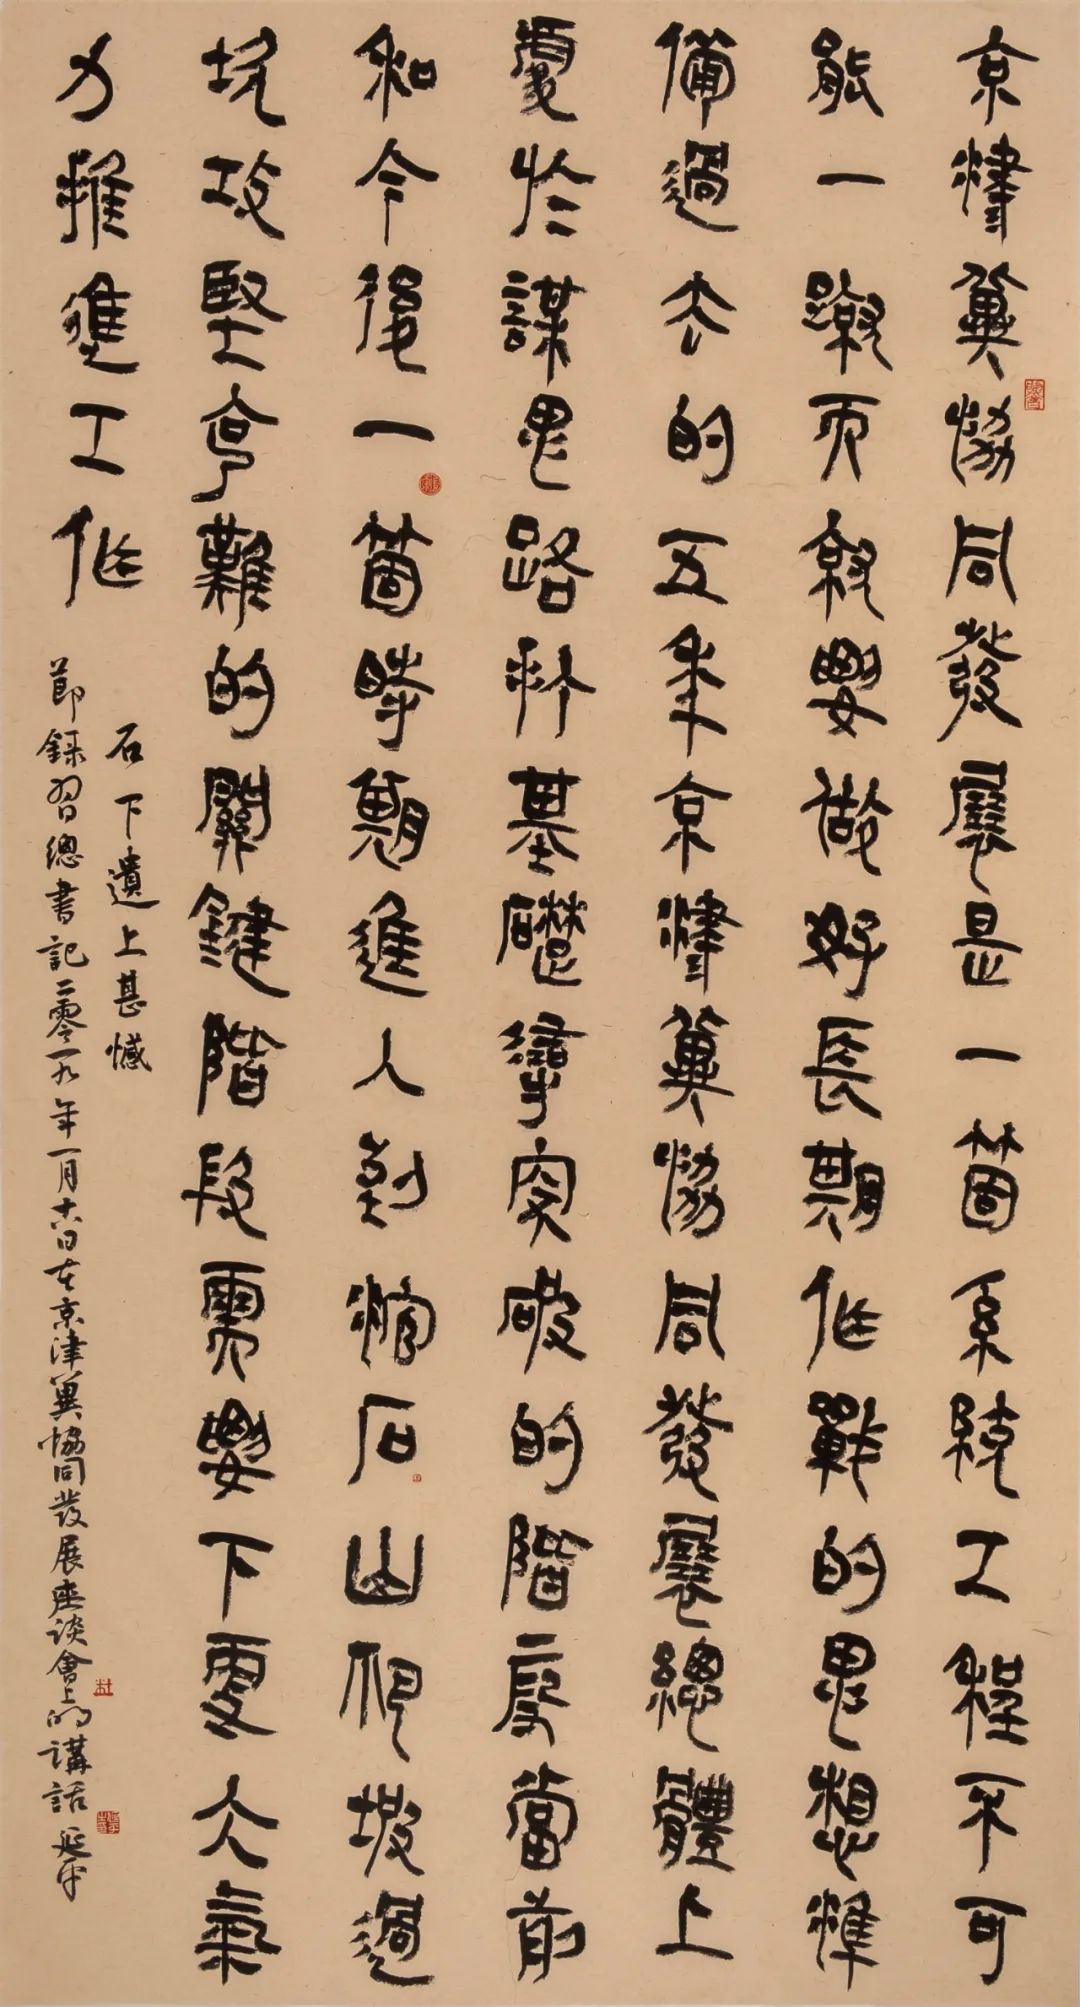 京津冀協同發展是一箇系統工程不可
能一蹴而就要做好長期作戰的思想準
備過去的五年京津冀協同發展總體上
處於謀思路打基礎尋突破的階段當前
和今後一箇時期進入到滾石山爬坡過
坎攻堅克難的關鍵階段需要下更大氣
力推進工作
石下遺上甚憾
節錄習總書記二零一九年一月十八日在京津冀協同發展座談會上的講話